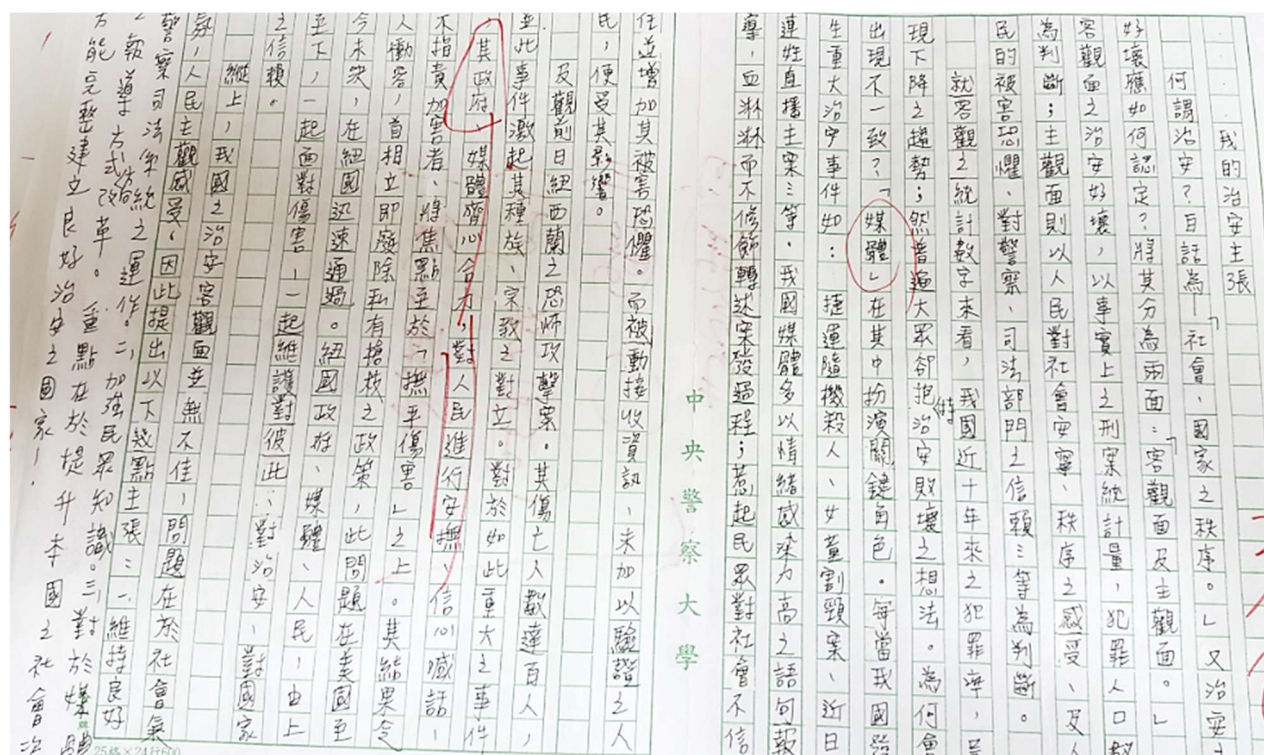 我的治安主張
何謂治安？白話為「社會、國家之秩序。」又治安
好壞應如何認定？將其分為兩面：「客觀面及主觀面。」
客觀面之治安好壞，以事實上之刑案統計量，犯罪人口數
為判斷；主觀面則以人民對社會安寧、秩序之感受、及人
民的被害恐懼、對警察、司法部門之信賴…等為判斷。
就客觀之統計數字來看，我國近十年來之犯罪率，呈
現下降之趨勢；然普遍大眾卻把持治安敗壞之想法。為何會
出現不一致？「媒體」在其中扮演關鍵角色。每當我國發
生重大治安事件如：捷運隨機殺人、女童割頸案、近日
連姓直播主案…等。我國媒體多以情緒感染力高之語句報
導，血淋淋而不修飾轉述案發過程；惹起民眾對社會不信
任並增加其被害恐懼。而被動接收資訊、未加以驗證之人
民，便受其影響。
及觀前日紐西蘭之恐怖攻擊案。其傷亡人數達百人，
並此事件激起其種族、宗教之對立。對於如此重大之事件，
其政府、媒體齊心合力，對人民進行安撫、信心喊話、
不指責加害者、將焦點至於「撫平傷害」之上。其結果令
人動容，首相立即廢除私有槍枝之政策，此問題在美國至
今未決，在紐國迅速通過。紐國政府、媒體、人民，由上
至下，一起面對傷害，一起維護對彼此、對治安、對國家
之信賴。
縱上，我國之治安客觀面並無不佳，問題在於社會氣
氛，人民主觀感受。因此提出以下幾點主張：一、維持良好
警察司法系統之運作。二、加強民眾知識。三、對於媒體
報導方式改革。重點在於提升本國之社會
方能完整建立良好治安之國家！
中央警察大學
25格×24行500